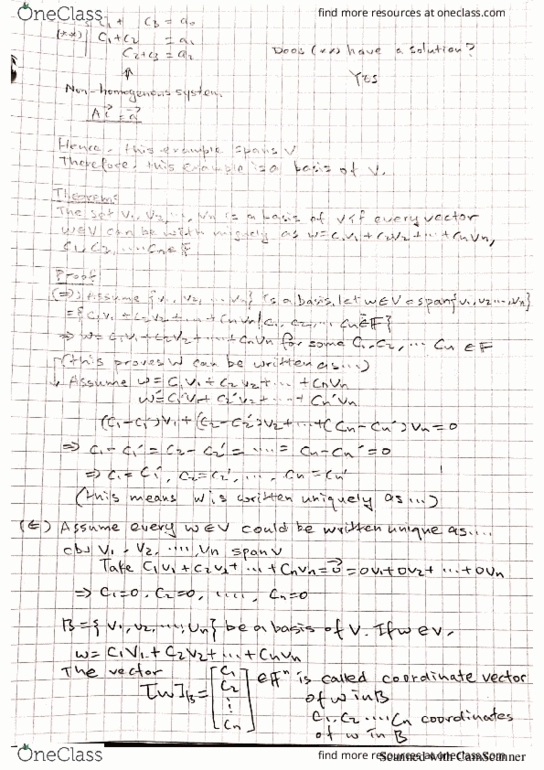 OneClass
find more resources at oneclass.com
c₁ + c₃ = a₀
(**) c₁+c₂ = a₁
c₂+c₃ = a₂
Does (**) have a solution?
Yes
↑
Non-homogenous system.
Ac⃗ = a⃗
Hence, this example spans V
Therefore, this example is a basis of V.
Theorem:
The set v₁, v₂, ..., vn is a basis of V if every vector
w∈V can be uniquely as w=c₁v₁+c₂v₂+...+cnvn,
c₁,c₂,...cn∈F
Proof
(⇒) Assume {v₁, v₂, ... vn} is a basis, let w∈V=span{v₁,v₂...,vn}
={c₁v₁+c₂v₂+...+cnvn|c₁,c₂,... cn∈F}
⇒ w=c₁v₁+c₂v₂+...+cnvn for some c₁,c₂,... cn ∈F
(this proves w can be written as...)
↓ Assume w=c₁v₁+c₂v₂+...+cnvn
w=c₁'v₁+c₂'v₂+...+cn'vn
(c₁-c₁')v₁+(c₂-c₂')v₂+...+(cn-cn')vn=0
⇒ c₁-c₁'=c₂-c₂'=....=cn-cn'=0
⇒ c₁=c₁', c₂=c₂', ..., cn=cn'
(this means w is written uniquely as ...)
(⇐) Assume every w∈V could be written unique as....
v₁, v₂, ...., vn span V
Take c₁v₁+c₂v₂+...+cnvn=0⃗=0v₁+0v₂+...+0vn
⇒ c₁=0, c₂=0, ...., cn=0
B={v₁,v₂,....,vn} be a basis of V. If w∈V,
w=c₁v₁+c₂v₂+...+cnvn
The vector
[w]_B = [c₁ c₂ ⋮ cn] ∈Fⁿ is called coordinate vector
of w in B
c₁,c₂....cn coordinates
of w in B
OneClass
find more resources at oneclass.com
Scanned with CamScanner